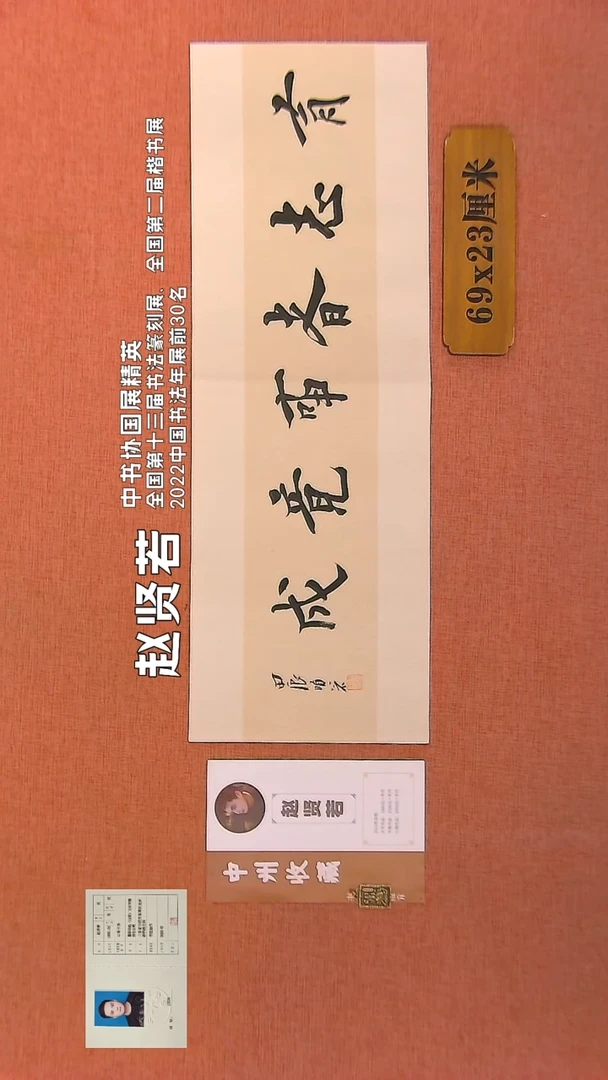 中书协国展精英
全国第十三届书法篆刻展、全国第二届楷书展
2022中国书法年展前30名
赵贤若
有志者事竟成
69x23厘米
赵贤若
中州收藏